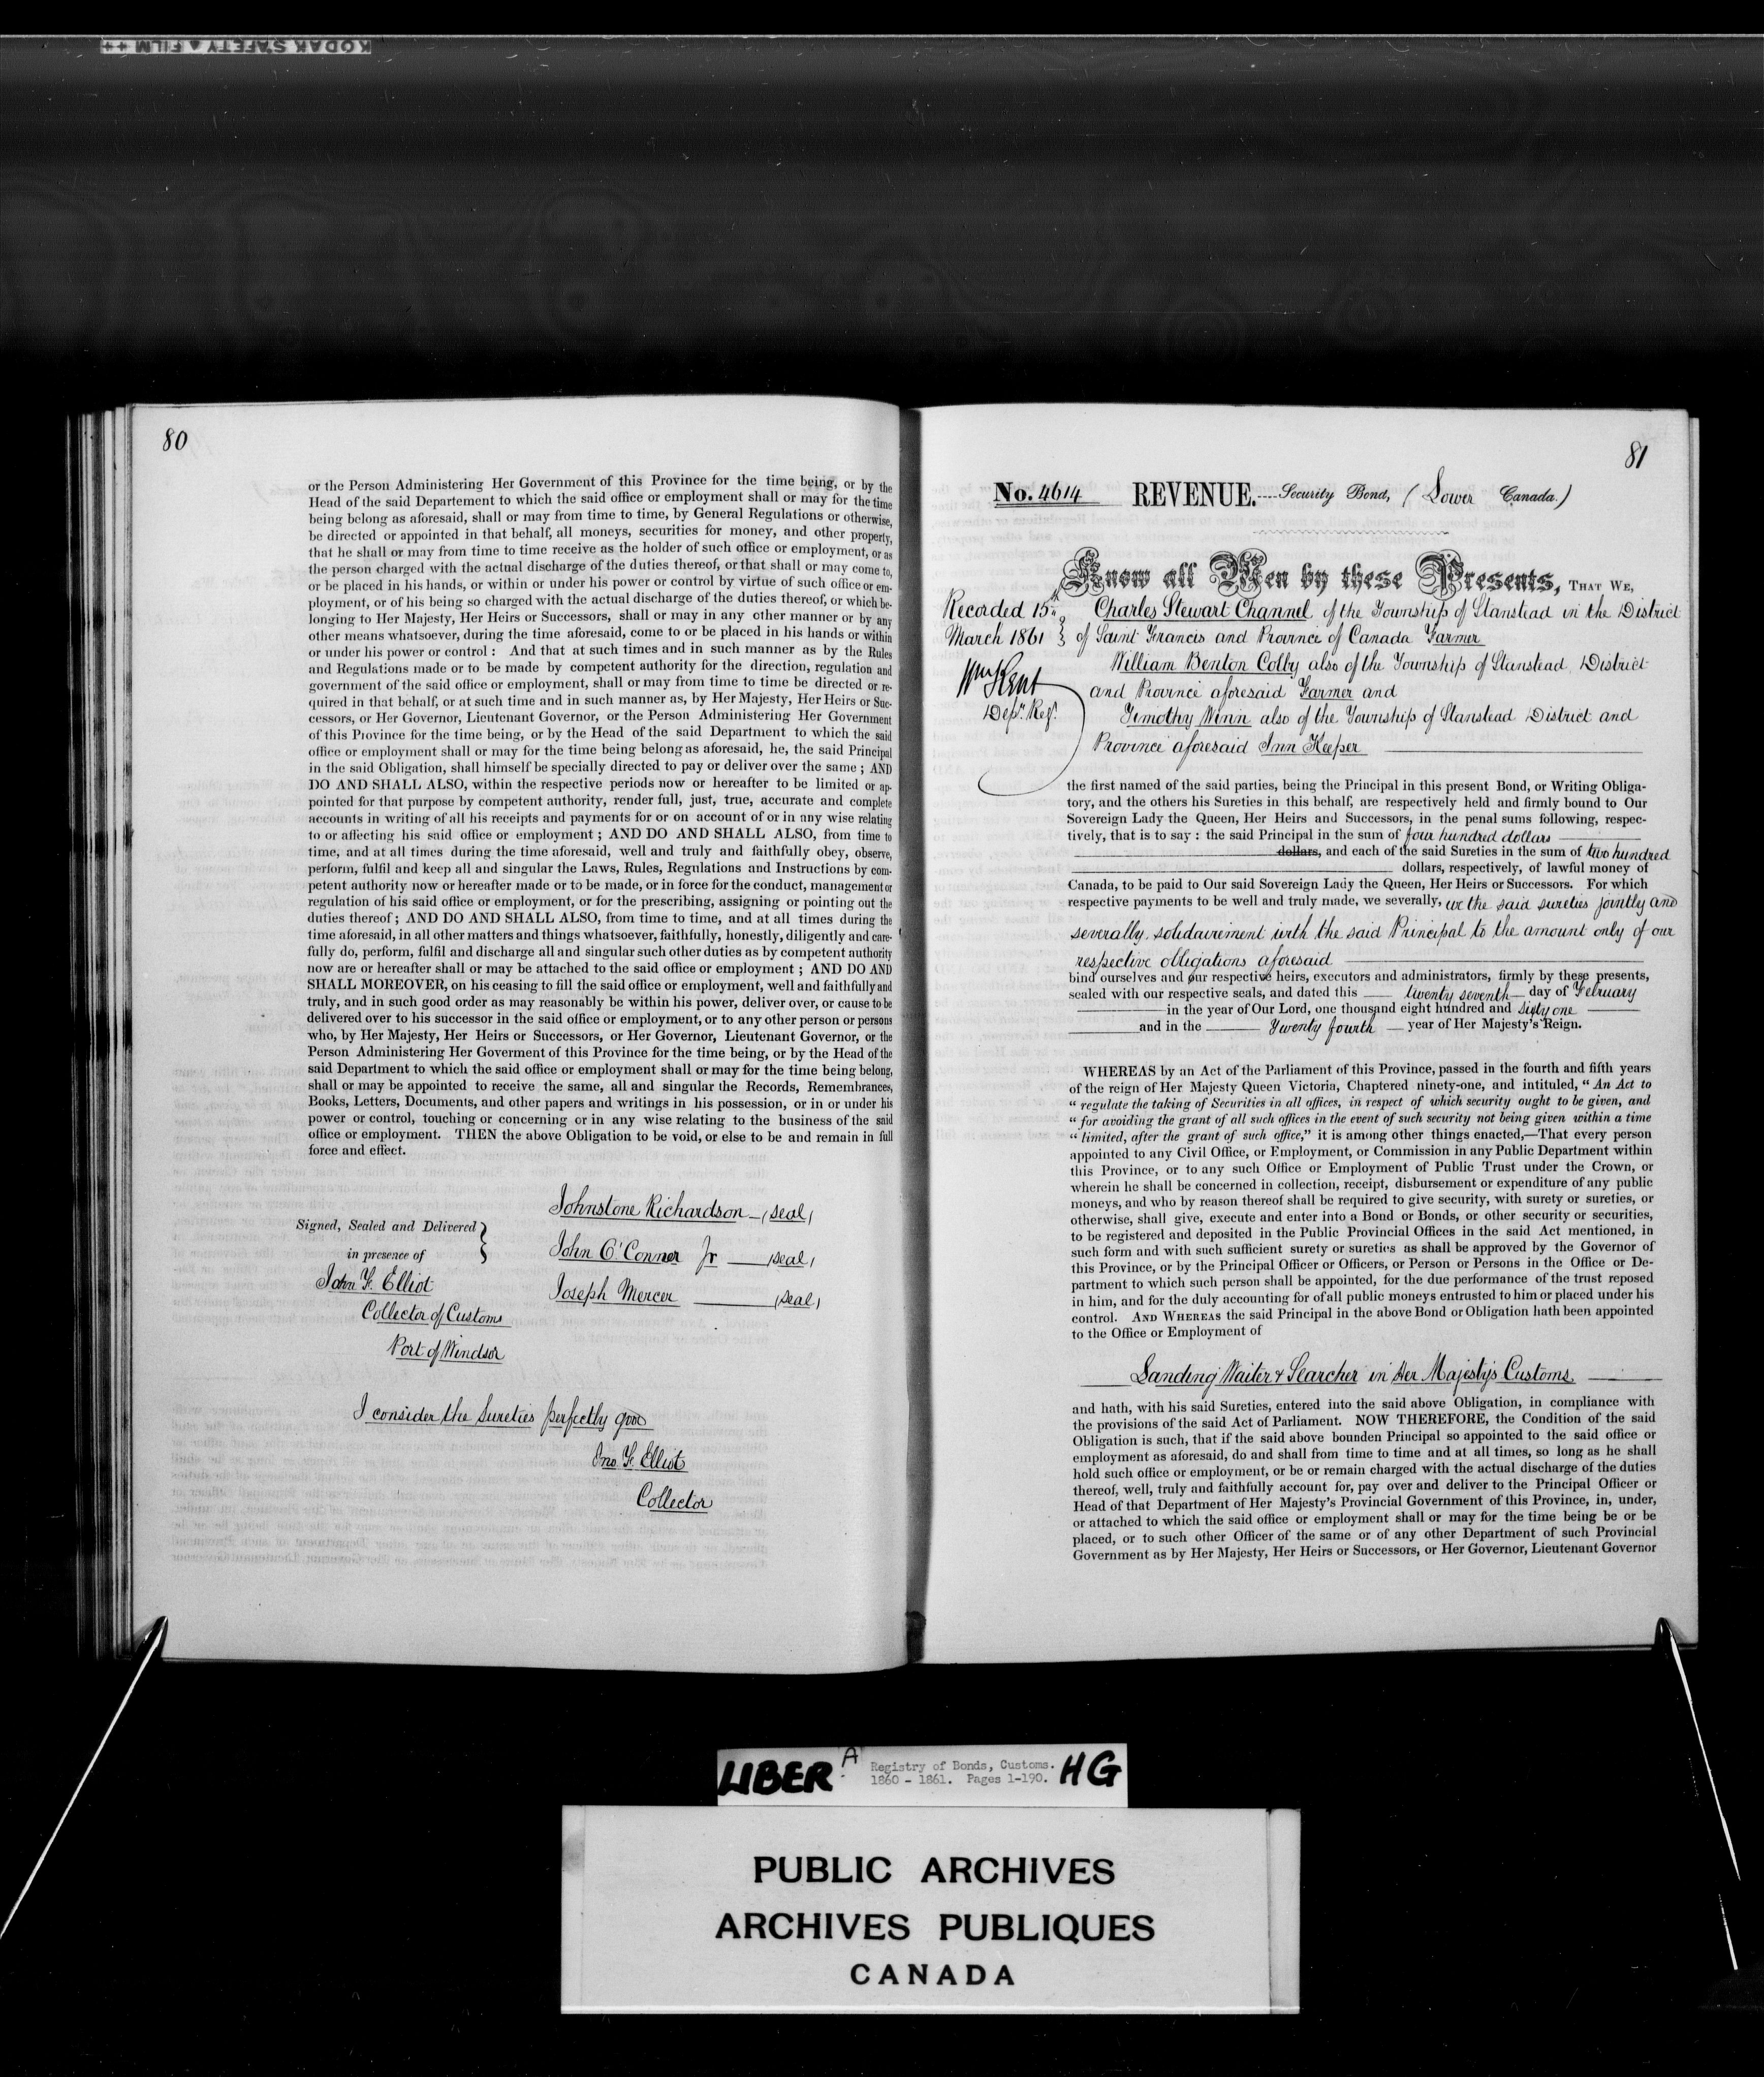 KODAK SAFETY ▲ FILM ++
80
or the Person Administering Her Government of this Province for the time being, or by the
Head of the said Departement to which the said office or employment shall or may for the time
being belong as aforesaid, shall or may from time to time, by General Regulations or otherwise,
be directed or appointed in that behalf, all moneys, securities for money, and other property,
that he shall or may from time to time receive as the holder of such office or employment, or as
the person charged with the actual discharge of the duties thereof, or that shall or may come to,
or be placed in his hands, or within or under his power or control by virtue of such office or em-
ployment, or of his being so charged with the actual discharge of the duties thereof, or which be-
longing to Her Majesty, Her Heirs or Successors, shall or may in any other manner or by any
other means whatsoever, during the time aforesaid, come to or be placed in his hands or within
or under his power or control : And that at such times and in such manner as by the Rules
and Regulations made or to be made by competent authority for the direction, regulation and
government of the said office or employment, shall or may from time to time be directed or re-
quired in that behalf, or at such time and in such manner as, by Her Majesty, Her Heirs or Suc-
cessors, or Her Governor, Lieutenant Governor, or the Person Administering Her Government
of this Province for the time being, or by the Head of the said Department to which the said
office or employment shall or may for the time being belong as aforesaid, he, the said Principal
in the said Obligation, shall himself be specially directed to pay or deliver over the same ; AND
DO AND SHALL ALSO, within the respective periods now or hereafter to be limited or ap-
pointed for that purpose by competent authority, render full, just, true, accurate and complete
accounts in writing of all his receipts and payments for or on account of or in any wise relating
to or affecting his said office or employment ; AND DO AND SHALL ALSO, from time to
time, and at all times during the time aforesaid, well and truly and faithfully obey, observe,
perform, fulfil and keep all and singular the Laws, Rules, Regulations and Instructions by com-
petent authority now or hereafter made or to be made, or in force for the conduct, management or
regulation of his said office or employment, or for the prescribing, assigning or pointing out the
duties thereof ; AND DO AND SHALL ALSO, from time to time, and at all times during the
time aforesaid, in all other matters and things whatsoever, faithfully, honestly, diligently and care-
fully do, perform, fulfil and discharge all and singular such other duties as by competent authority
now are or hereafter shall or may be attached to the said office or employment ; AND DO AND
SHALL MOREOVER, on his ceasing to fill the said office or employment, well and faithfully and
truly, and in such good order as may reasonably be within his power, deliver over, or cause to be
delivered over to his successor in the said office or employment, or to any other person or persons
who, by Her Majesty, Her Heirs or Successors, or Her Governor, Lieutenant Governor, or the
Person Administering Her Goverment of this Province for the time being, or by the Head of the
said Department to which the said office or employment shall or may for the time being belong,
shall or may be appointed to receive the same, all and singular the Records, Remembrances,
Books, Letters, Documents, and other papers and writings in his possession, or in or under his
power or control, touching or concerning or in any wise relating to the business of the said
office or employment. THEN the above Obligation to be void, or else to be and remain in full
force and effect.
Johnstone Richardson (seal)
Signed, Sealed and Delivered
in presence of
John O'Conner Jr (seal)
John F. Elliot
Joseph Mercer (seal)
Collector of Customs
Port of Windsor
I consider the Sureties perfectly good
Jno. F. Elliot
Collector
81
No. 4614 REVENUE.----Security Bond, (Lower Canada.)
Know all Men by these Presents, THAT WE,
Recorded 15th
March 1861
Wm Kent
Depy. Regr.
Charles Stewart Channel of the Township of Stanstead in the District
of Saint Francis and Province of Canada Farmer
William Benton Colby also of the Township of Stanstead District
and Province aforesaid Farmer and
Timothy Winn also of the Township of Stanstead District and
Province aforesaid Inn Keeper
the first named of the said parties, being the Principal in this present Bond, or Writing Obliga-
tory, and the others his Sureties in this behalf, are respectively held and firmly bound to Our
Sovereign Lady the Queen, Her Heirs and Successors, in the penal sums following, respec-
tively, that is to say : the said Principal in the sum of four hundred dollars
dollars, and each of the said Sureties in the sum of two hundred
dollars, respectively, of lawful money of
Canada, to be paid to Our said Sovereign Lady the Queen, Her Heirs or Successors. For which
respective payments to be well and truly made, we severally, we the said sureties jointly and
severally, solidairement with the said Principal to the amount only of our
respective obligations aforesaid
bind ourselves and our respective heirs, executors and administrators, firmly by these presents,
sealed with our respective seals, and dated this twenty seventh day of February
in the year of Our Lord, one thousand eight hundred and sixty one
and in the Twenty fourth year of Her Majesty's Reign.
WHEREAS by an Act of the Parliament of this Province, passed in the fourth and fifth years
of the reign of Her Majesty Queen Victoria, Chaptered ninety-one, and intituled, " An Act to
" regulate the taking of Securities in all offices, in respect of which security ought to be given, and
" for avoiding the grant of all such offices in the event of such security not being given within a time
" limited, after the grant of such office," it is among other things enacted,—That every person
appointed to any Civil Office, or Employment, or Commission in any Public Department within
this Province, or to any such Office or Employment of Public Trust under the Crown, or
wherein he shall be concerned in collection, receipt, disbursement or expenditure of any public
moneys, and who by reason thereof shall be required to give security, with surety or sureties, or
otherwise, shall give, execute and enter into a Bond or Bonds, or other security or securities,
to be registered and deposited in the Public Provincial Offices in the said Act mentioned, in
such form and with such sufficient surety or sureties as shall be approved by the Governor of
this Province, or by the Principal Officer or Officers, or Person or Persons in the Office or De-
partment to which such person shall be appointed, for the due performance of the trust reposed
in him, and for the duly accounting for of all public moneys entrusted to him or placed under his
control. AND WHEREAS the said Principal in the above Bond or Obligation hath been appointed
to the Office or Employment of
Landing Waiter & Searcher in Her Majestys Customs.
and hath, with his said Sureties, entered into the said above Obligation, in compliance with
the provisions of the said Act of Parliament. NOW THEREFORE, the Condition of the said
Obligation is such, that if the said above bounden Principal so appointed to the said office or
employment as aforesaid, do and shall from time to time and at all times, so long as he shall
hold such office or employment, or be or remain charged with the actual discharge of the duties
thereof, well, truly and faithfully account for, pay over and deliver to the Principal Officer or
Head of that Department of Her Majesty's Provincial Government of this Province, in, under,
or attached to which the said office or employment shall or may for the time being be or be
placed, or to such other Officer of the same or of any other Department of such Provincial
Government as by Her Majesty, Her Heirs or Successors, or Her Governor, Lieutenant Governor
LIBER A Registry of Bonds, Customs. HG
1860 - 1861. Pages 1-190.
PUBLIC ARCHIVES
ARCHIVES PUBLIQUES
CANADA